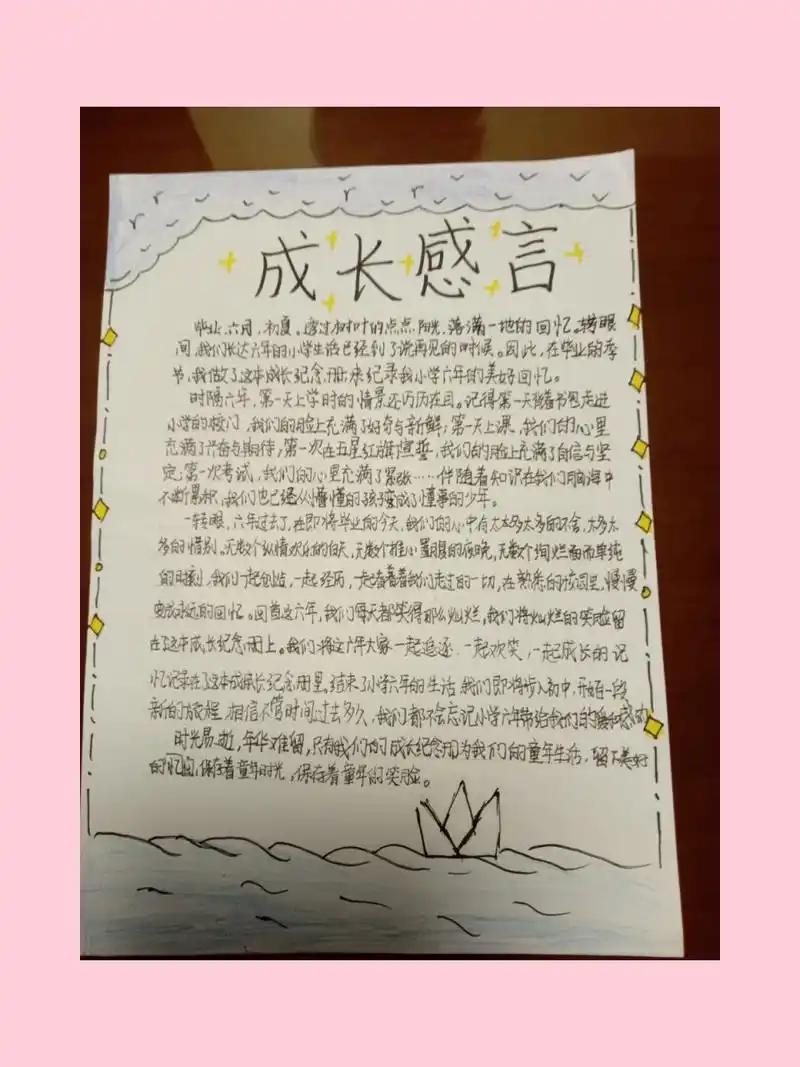 成长感言
毕业,六月,初夏。透过树叶的点点阳光,落满一地的回忆。转眼
间,我们长达六年的小学生活已经到了说再见的时候。因此,在毕业的季
节,我做了这本成长纪念册,来纪录我小学六年的美好回忆。
时隔六年,第一天上学时的情景还历历在目。记得第一天背着书包走进
小学的校门,我们的脸上充满了好奇与新鲜;第一天上课,我们的心里
充满了兴奋与期待;第一次在五星红旗下宣誓,我们的脸上充满了自信与坚
定;第一次考试,我们的心里充满了紧张……伴随着知识在我们脑海中
不断累积,我们也已经从懵懂的孩子变成了懂事的少年。
一转眼,六年过去了,在即将毕业的今天,我们的心中有太多太多的不舍,太多太
多的惜别。无数个纵情欢乐的白天,无数个推心置腹的夜晚,无数个绚烂而单纯
的时刻,我们一起创造,一起经历,一起走过的一切,在熟悉的校园里,慢慢
变成永远的回忆。回首这六年,我们每天都笑得那么灿烂,我们将灿烂的笑脸留
在了这本成长纪念册上。我们将这六年大家一起追逐,一起欢笑,一起成长的记
忆记录在了这本成长纪念册里。结束了小学六年的生活,我们即将步入初中,开始一段
新的旅程,相信不管时间过去多久,我们都不会忘记小学六年带给我们的
时光易逝,年华难留,只有我们的成长纪念册为我们的童年生活,留下美好
的忆,保存着童年时光,保存着童年的笑脸。